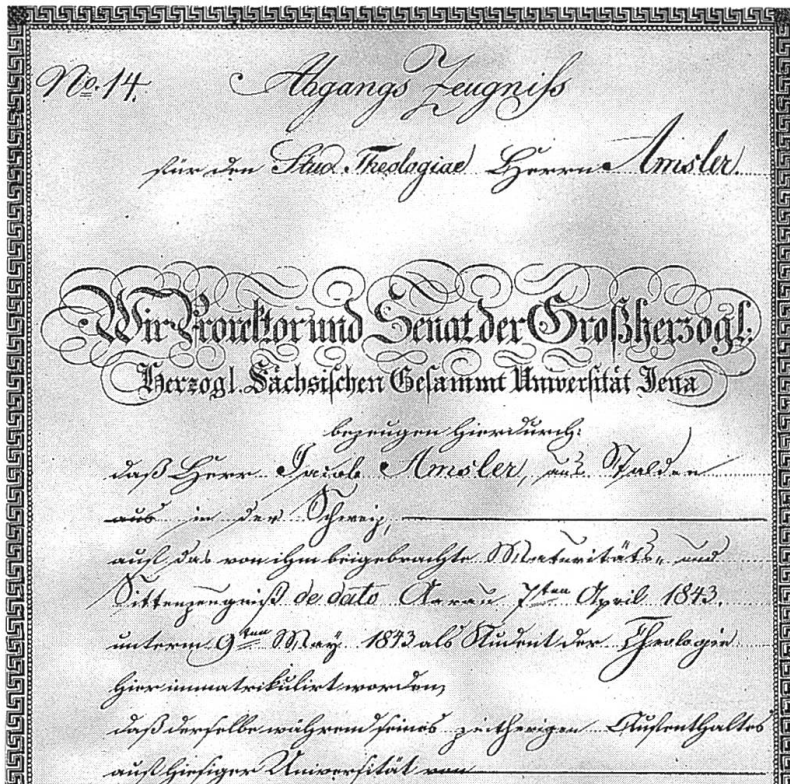 No. 14. Abgangs Zeugniß
für den Stud. Theologiae Herrn Amsler.
Wir Prorektor und Senat der Großherzogl.
Herzogl. Sächsischen Gesammt Universität Jena
bezeugen hierdurch:
daß Herr Jacob Amsler, aus Stalden
aus in der Schweiz,
auf das von ihm beigebrachte Maturitäts- und
Sittenzeugniß de dato Aarau 7ten April 1843.
unterm 9ten May 1843 als Student der Theologie
hier immatrikulirt worden,
daß derselbe während seines zeitherigen Aufenthaltes
auf hiesiger Universität von